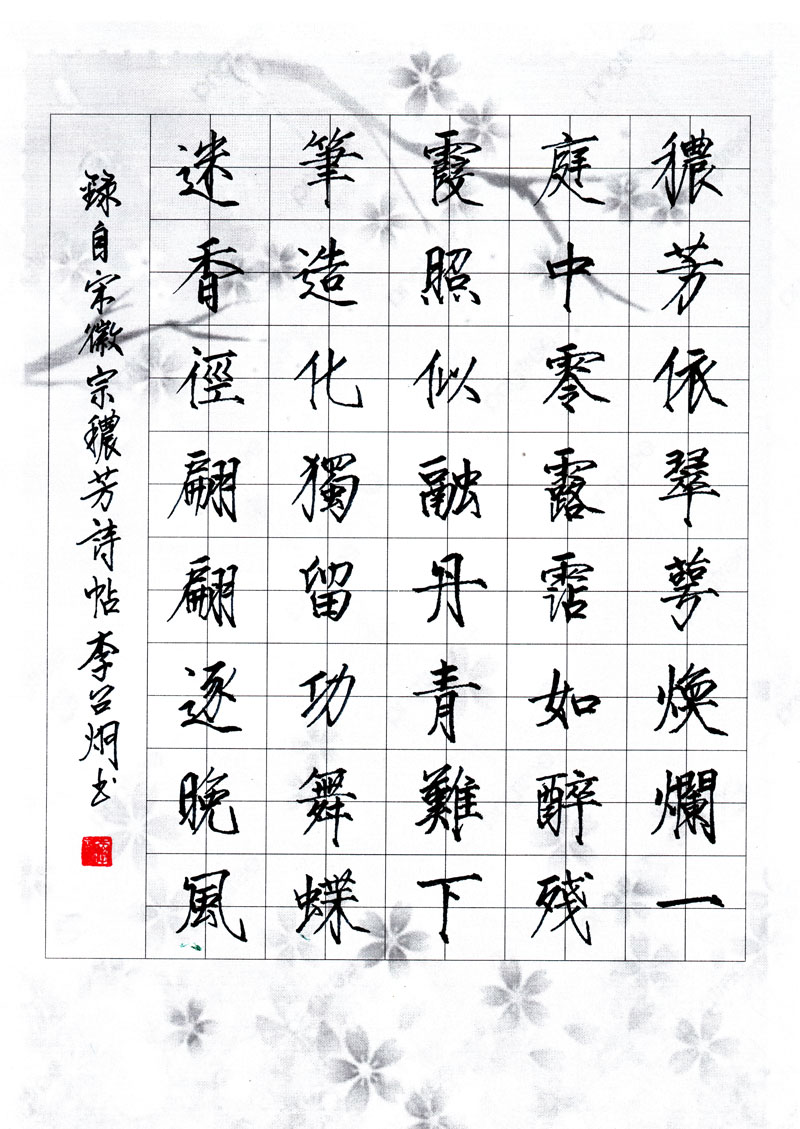 穠芳依翠萼煥爛一
庭中零露霑如醉殘
霞照似融丹青難下
筆造化獨留功舞蝶
迷香徑翩翩逐晚風
錄自宋徽宗穠芳詩帖李公炯书